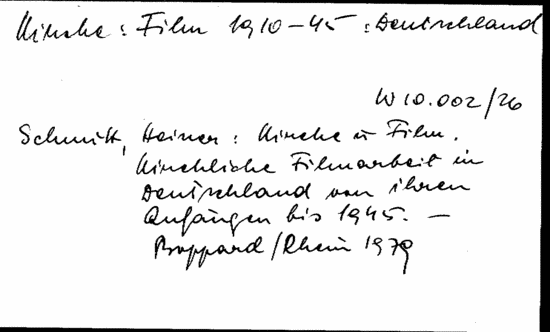 Kirche : Film 1910-45 : Deutschland
W 10.002/26
Schmitt, Heiner : Kirche u Film.
Kirchliche Filmarbeit in
Deutschland von ihren
Anfängen bis 1945. —
Boppard/Rhein 1979